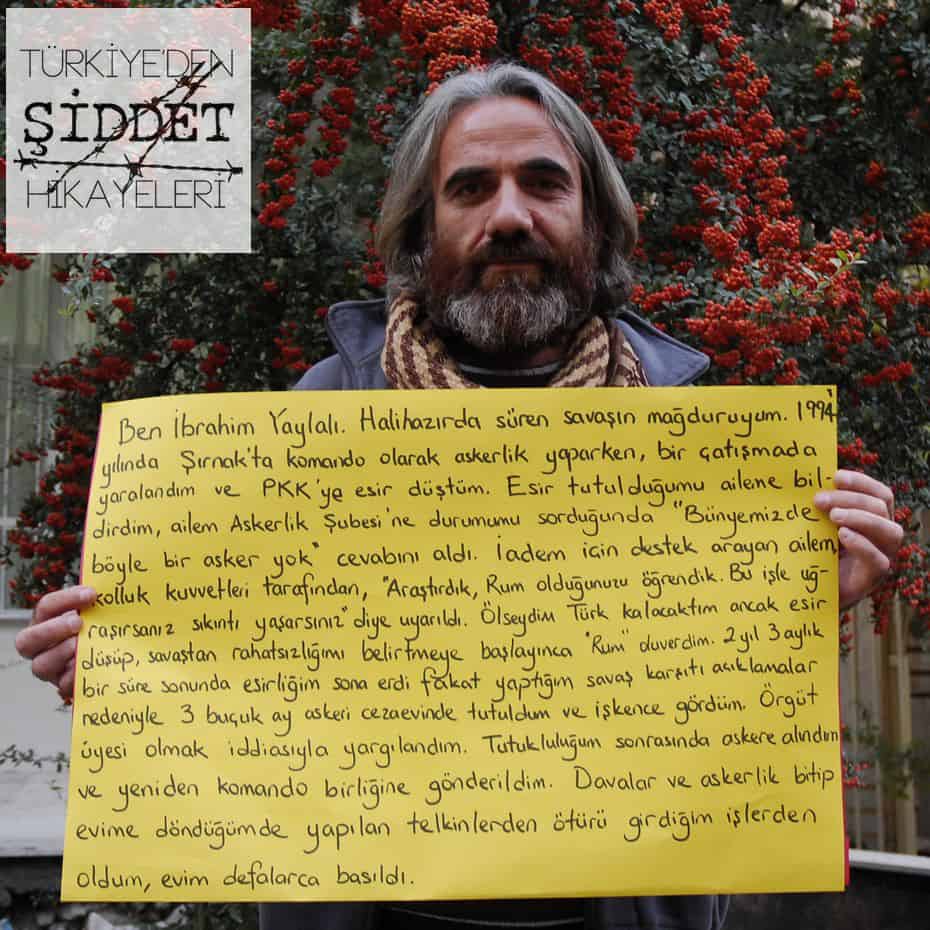 TÜRKİYE'DEN
ŞİDDET
HİKAYELERİ
Ben İbrahim Yaylalı. Halihazırda süren savaşın mağduruyum. 1994
yılında Şırnak'ta komando olarak askerlik yaparken, bir çatışmada
yaralandım ve PKK'ya esir düştüm. Esir tutulduğumu aileme bil-
dirdim, ailem Askerlik Şubesi'ne durumumu sorduğunda "Bünyemizde
böyle bir asker yok" cevabını aldı. İadem için destek arayan ailem,
kolluk kuvvetleri tarafından, "Araştırdık, Rum olduğunuzu öğrendik. Bu işle uğ-
raşırsanız sıkıntı yaşarsınız" diye uyarıldı. Ölseydim Türk kalacaktım ancak esir
düşüp, savaştan rahatsızlığımı belirtmeye başlayınca "Rum" oluverdim. 2 yıl 3 aylık
bir süre sonunda esirliğim sona erdi fakat yaptığım savaş karşıtı açıklamalar
nedeniyle 3 buçuk ay askeri cezaevinde tutuldum ve işkence gördüm. Örgüt
üyesi olmak iddiasıyla yargılandım. Tutukluluğum sonrasında askere alındım
ve yeniden komando birliğine gönderildim. Davalar ve askerlik bitip
evime döndüğümde yapılan telkinlerden ötürü girdiğim işlerden
oldum, evim defalarca basıldı.